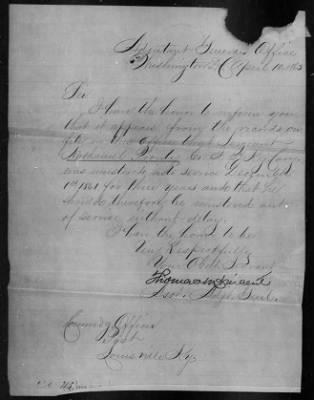 Adjutant General's Office
Washington D.C. April 10. 1865
Sir
I have the honor to inform you
that it appears from the records on
file in this Office that Sergeant
Nathaniel Co. Cavy.
was mustered into service December
1st 1861 for three years and that he
should therefore be mustered out
of service without delay.
I have the honor to be
Very Respectfully
Your Obdt. Servant
Thomas M. Vincent
Asst. Adjt. Genl.
Officer
Post
Louisville Ky.